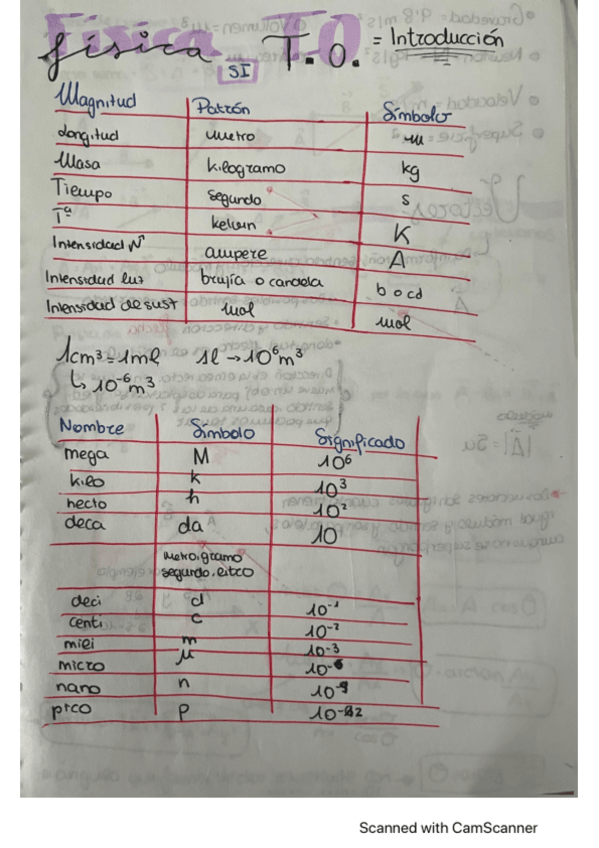 Física T.O. = Introducción
SI
Magnitud Patrón Símbolo
Longitud metro m
Masa kilogramo kg
Tiempo segundo s
Tª kelvin K
Intensidad ampere A
Intensidad luz brujía o candela b o cd
Intensidad de sust mol mol
1cm³ = 1ml 1l → 10⁶m³
↳ 10⁻⁶m³
Nombre Símbolo Significado
mega M 10⁶
kilo k 10³
hecto h 10²
deca da 10
metro, gramo
segundo, litro
deci d 10⁻¹
centi c 10⁻²
mili m 10⁻³
micro μ 10⁻⁶
nano n 10⁻⁹
pico p 10⁻¹²
Scanned with CamScanner